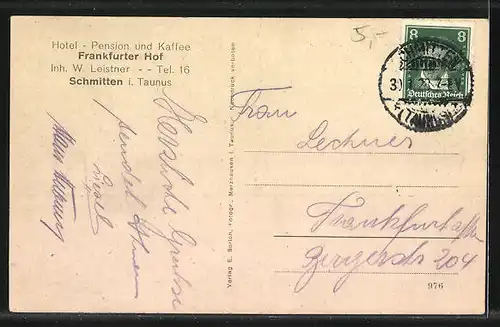 5,-
Hotel - Pension und Kaffee
Frankfurter Hof
Inh. W. Leistner - - Tel. 16
Schmitten i. Taunus
8 8
Deutsches Reich
(TAUNUS)
Herzliche Grüsse
sendet Ihnen
Liesel
Verlag E. Sorich, Fotogr., Merzhausen i. Taunus. Nachdruck verboten
Frau
Lechner
Frankfurt a/M
Bergerstr 204
976